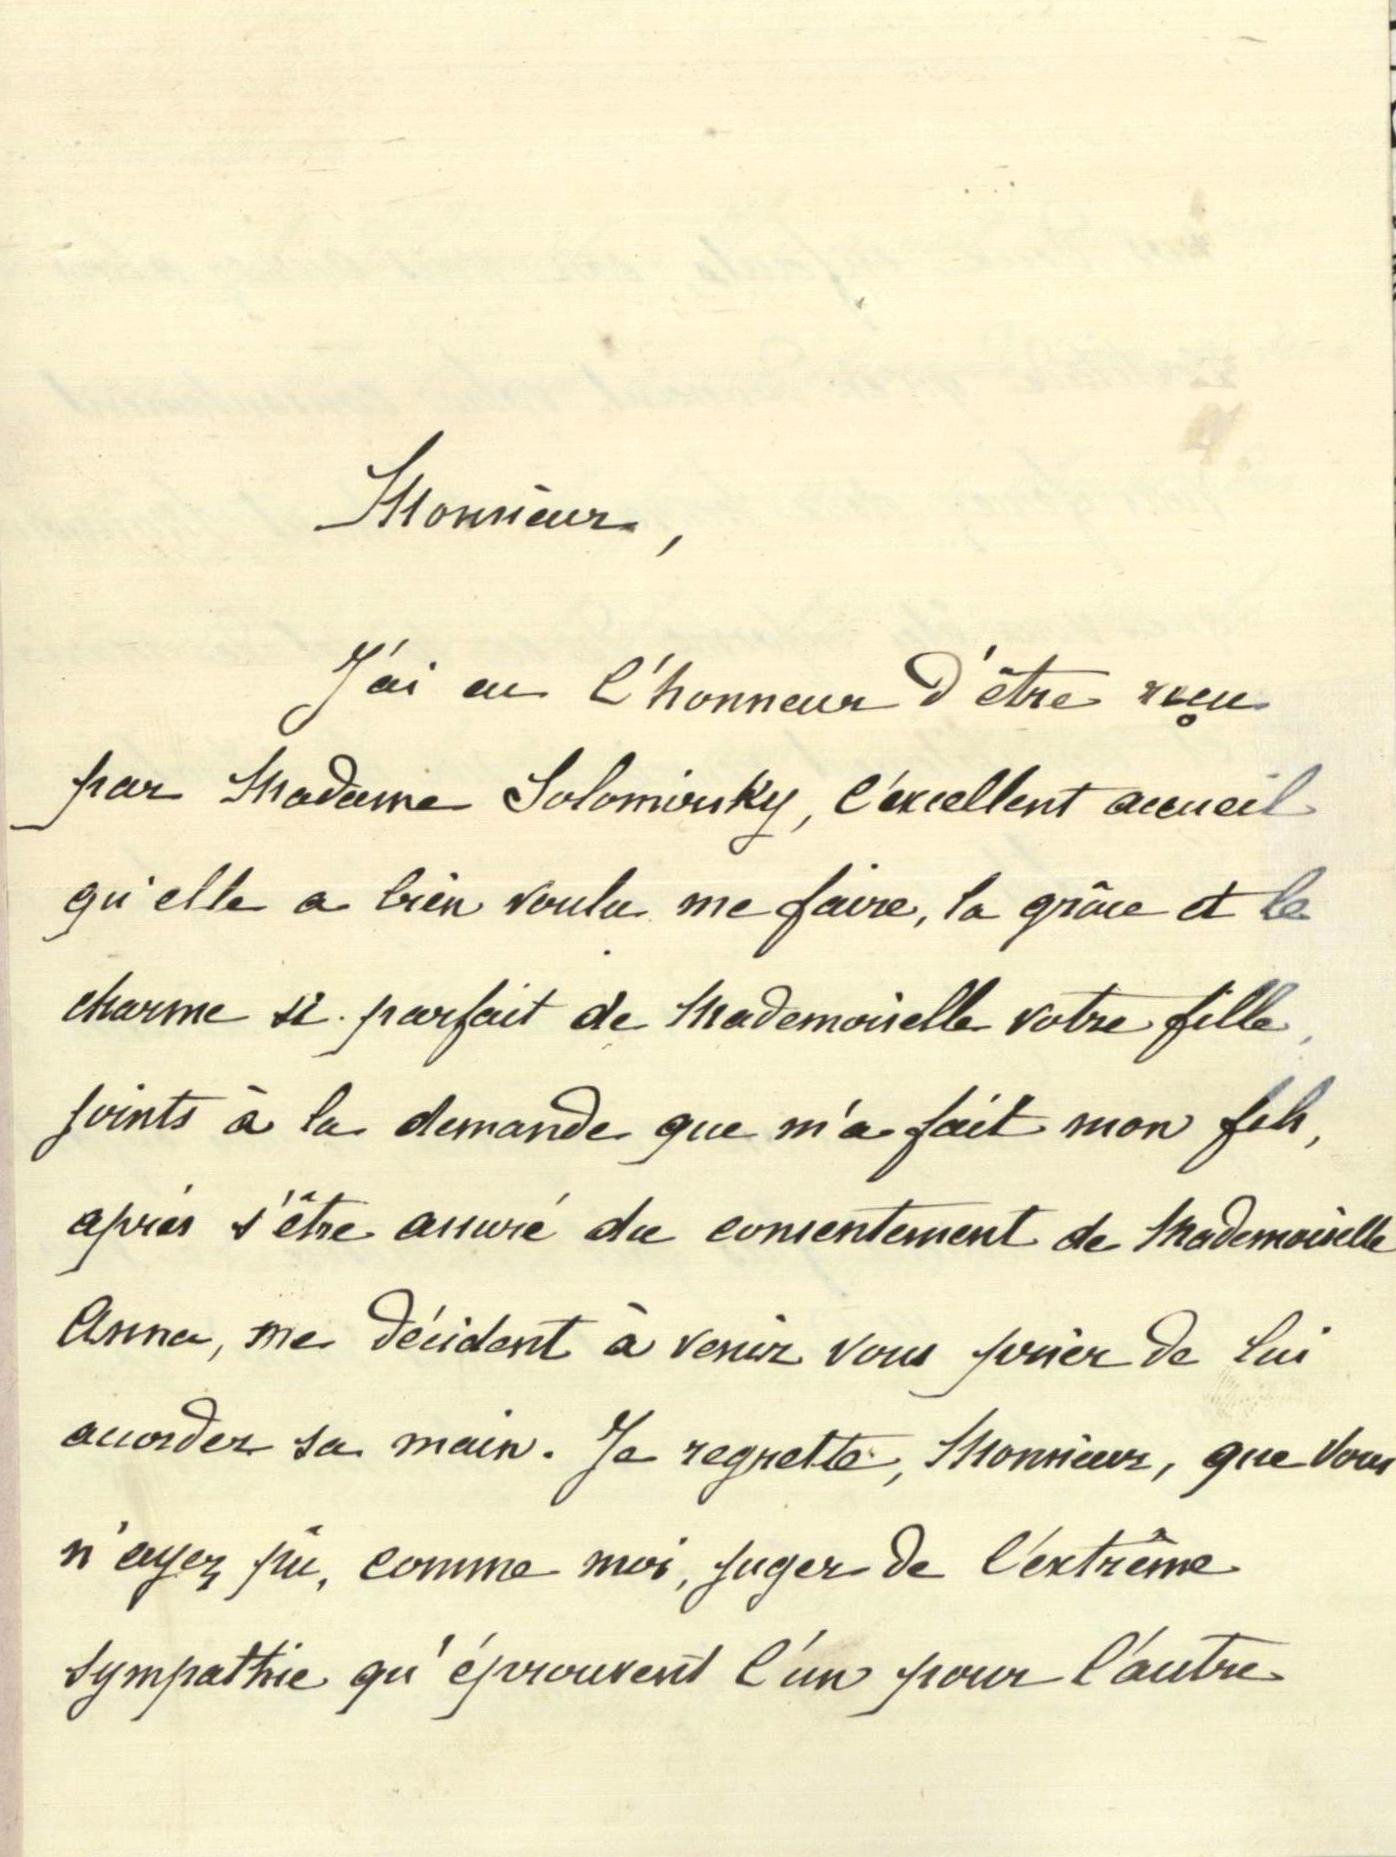 Monsieur,
J'ai eu l'honneur d'être reçu
par Madame Solomirsky, l'excellent accueil
qu'elle a bien voulu me faire, la grâce et le
charme si parfait de Mademoiselle votre fille,
joints à la demande que m'a fait mon fils,
après s'être assuré du consentement de Mademoiselle
Anna, me décident à venir vous prier de lui
accorder sa main. Je regrette, Monsieur, que vous
n'ayez pû, comme moi, juger de l'extrême
sympathie qu'éprouvent l'un pour l'autre